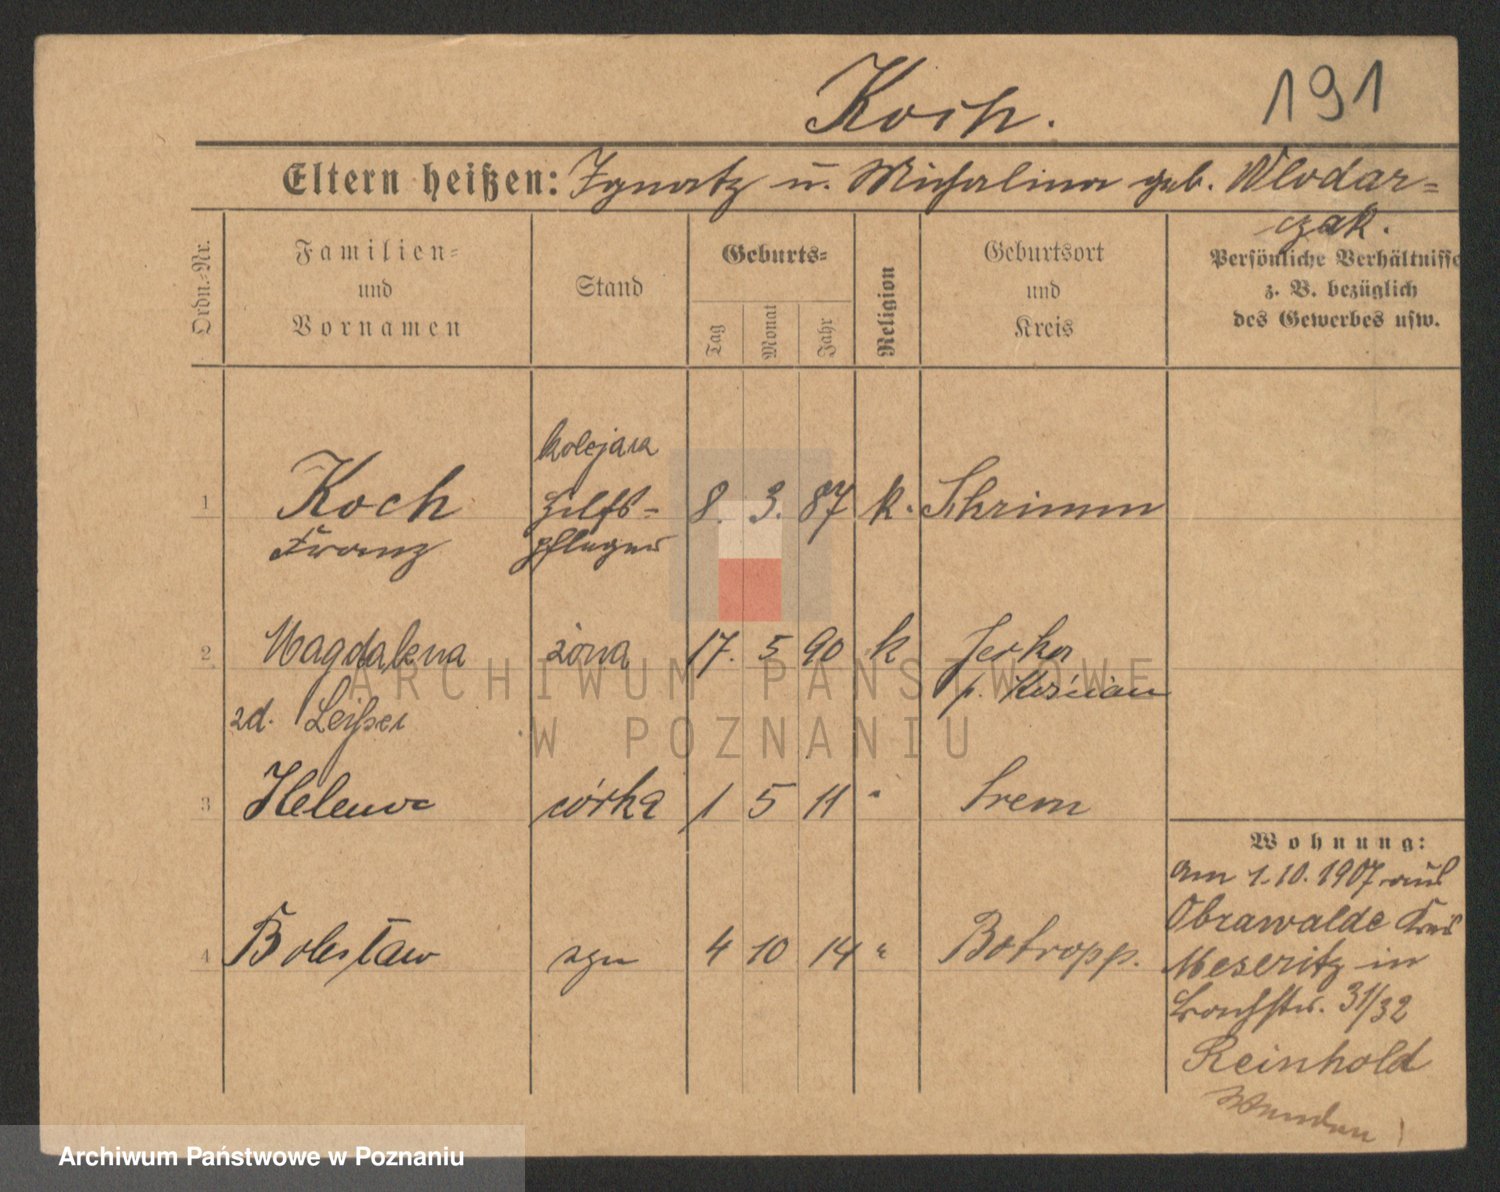 Koch.
191
Eltern heißen: Ignatz u. Michalina geb. Wlodar=
czak.
Ordn.=Nr.
Familien=
und
Vornamen
Stand
Geburts=
Tag
Monat
Jahr
Religion
Geburtsort
und
Kreis
Persönliche Verhältnisse
z. B. bezüglich
des Gewerbes usw.
kolejarz
1 Koch Hilfs= 8. 3. 87 k. Schrimm
Franz pfleger
2 Magdalena żona 17. 5 90 k Jerka
p. Kościan
zd. Leißer
3 Helena córka 1 5 11 " Śrem
4 Bolesław syn 4 10 14 " Botropp.
Wohnung:
am 1.10.1907 aus
Obrawalde Kreis
Meseritz in
31/32
Reinhold
ARCHIWUM PAŃSTWOWE
W POZNANIU
Archiwum Państwowe w Poznaniu